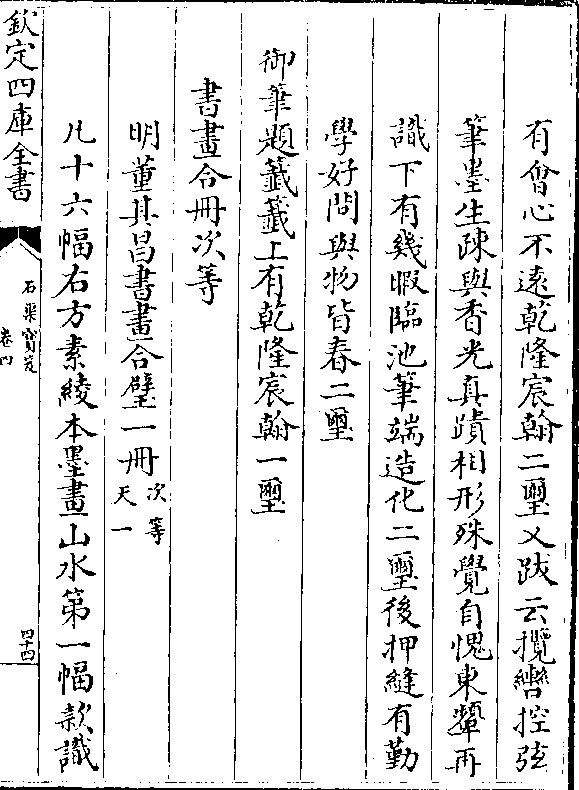 有會心不遠乾隆宸翰二璽又跋云攬轡控弦
筆墨生疎與香光真蹟相形殊覺自愧東顰再
識下有幾暇臨池筆端造化二璽後押縫有勤
學好問與物皆春二璽
御筆題籤籤上有乾隆宸翰一璽
書畫合冊次等
明董其昌書畫合璧一冊次等天一
凡十六幅右方素綾本墨畫山水第一幅款識
欽定四庫全書
石渠寶笈
卷四
四十四